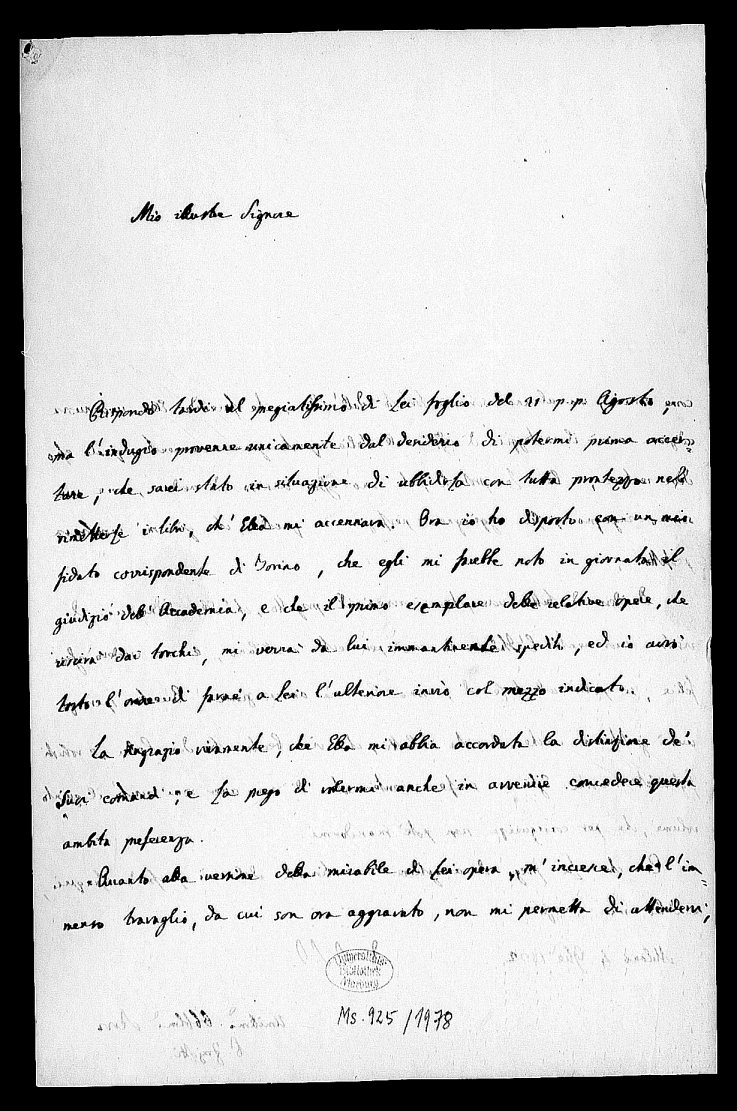 Mio illustre Signore
Rispondo tardi al pregiatissimo di Lei foglio del 21 p.p. Agosto,
ma l'indugio provenne unicamente dal desiderio di potermi prima accer=
tare, che sarei stato in situazione di ubbidirLa con tutta prontezza nello
rimetterLe i libri, ch'Ella mi accennava. Ora io ho disposto con un mio
fidato corrispondente di Torino, che egli mi farebbe noto in giornata il
giudizio dell'Accademia, e che il primo esemplare delle relative opere, che
uscirà dai torchi, mi verrà da lui immantinente spedito, ed io avrò
tosto l'onore di farne a Lei l'ulteriore invio col mezzo indicato.
La ringrazio vivamente, che Ella mi abbia accordata la distinzione de'
Suoi comandi, e La prego di volermi anche in avvenire concedere questa
ambita preferenza.
Quanto alla versione della mirabile di Lei opera, m'incresce, che l'im=
menso travaglio, da cui son ora aggravato, non mi permetta di attendervi,
Universitäts-
Bibliothek
Marburg
Ms. 925/1978